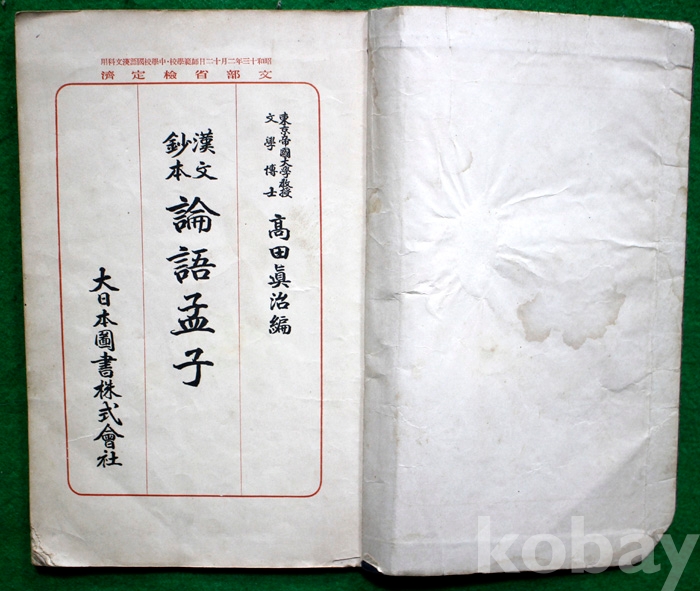 昭和十三年二月十二日師範學校・中學校國語漢文科用
文部省檢定濟
東京帝國大學教授
文學博士
高田眞治編
漢文
鈔本
論語孟子
大日本圖書株式會社
kobay